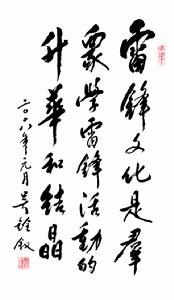 雷锋文化是群
众学雷锋活动的
升华和结晶
二〇一八年元月吴铨叙